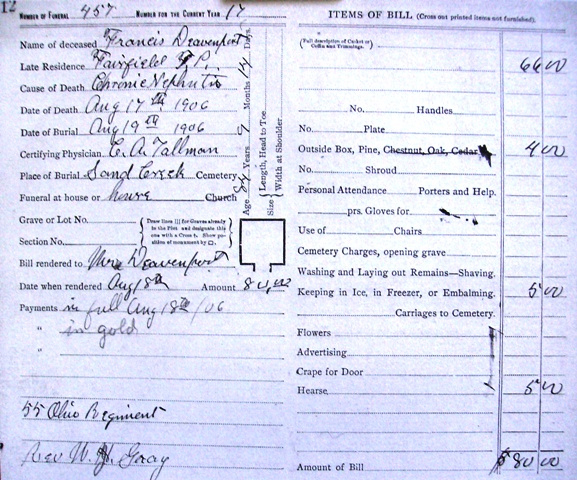 12
NUMBER OF FUNERAL 457 NUMBER FOR THE CURRENT YEAR 17
Name of deceased Francis Deavenport
Late Residence Fairfield T.P.
Cause of Death Chronic Nephritis
Date of Death Aug 17th 1906
Date of Burial Aug 19th 1906
Certifying Physician C. A. Tallman
Place of Burial Sand Creek Cemetery
Funeral at house or house Church
Age 84 Years 7 Months 14 Days.
Size { Length, Head to Toe
Width at Shoulder
Grave or Lot No.
Section No.
{ Draw lines ||| for Graves already in the Plot and designate this one with a Cross †. Show position of monument by □. }
Bill rendered to Mrs Deavenport
Date when rendered Aug 18th Amount 80.00
Payments in full Aug 18th /06
" in gold
"
55 Ohio Regiment
Rev W. H. Gray
ITEMS OF BILL (Cross out printed items not furnished).
{ Full description of Casket or Coffin and Trimmings. }
66 00
No. Handles
No. Plate
Outside Box, Pine, Chestnut, Oak, Cedar 4 00
No. Shroud
Personal Attendance Porters and Help.
prs. Gloves for
Use of Chairs
Cemetery Charges, opening grave
Washing and Laying out Remains—Shaving.
Keeping in Ice, in Freezer, or Embalming. 5 00
Carriages to Cemetery.
Flowers
Advertising
Crape for Door
Hearse 5 00
Amount of Bill $80 00